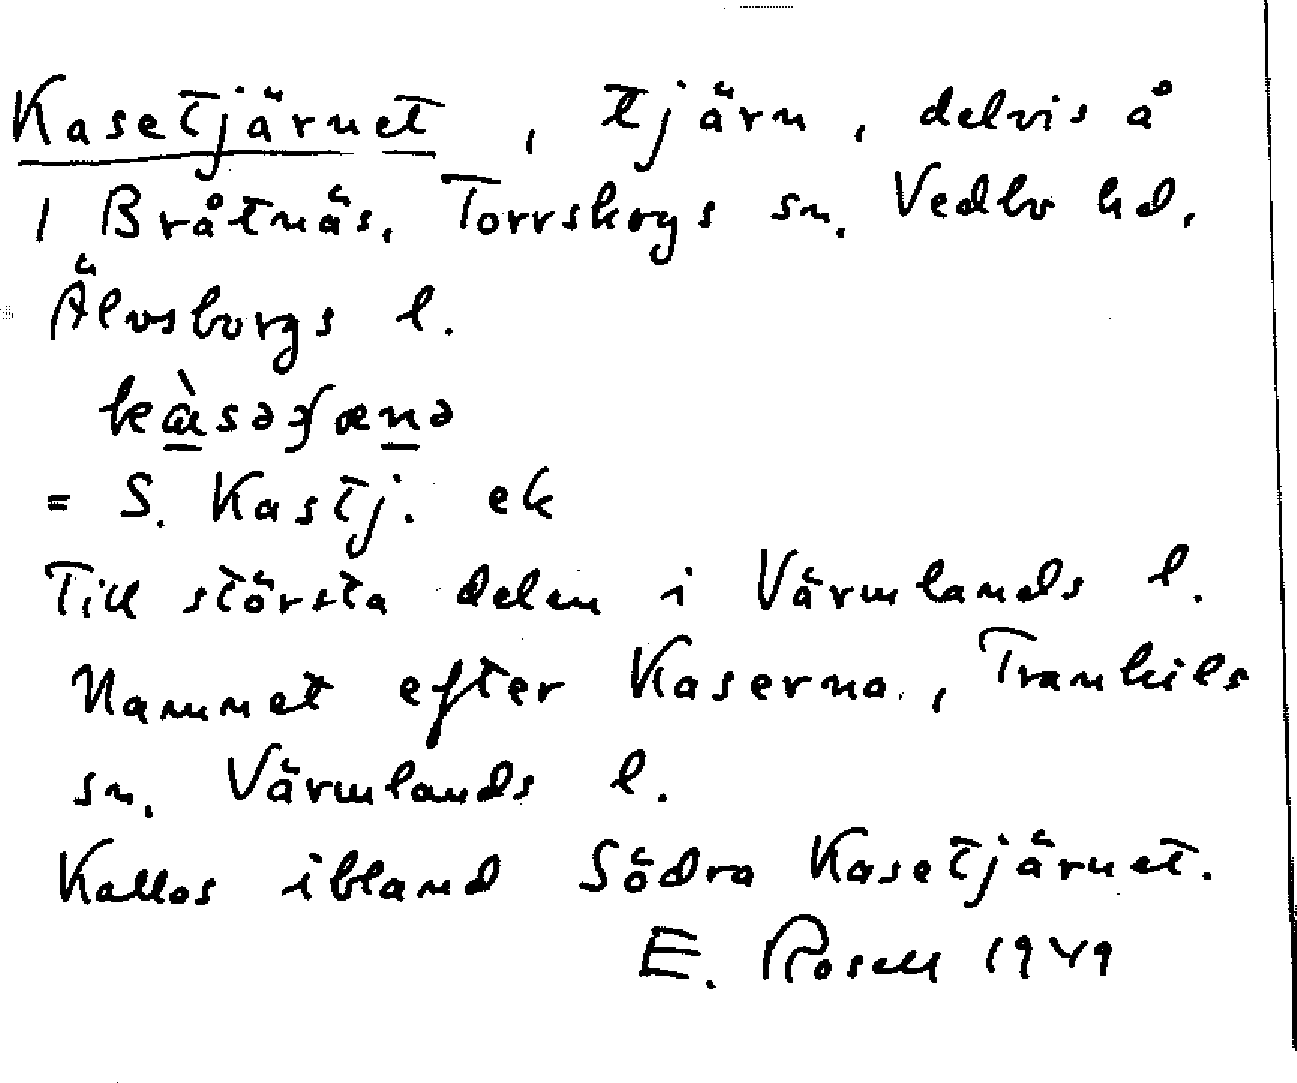 Kasetjärnet, tjärn, delvis å
1 Bråtnäs, Torrskogs sn. Vedbo hd,
Älvsborgs l.
= S. Kastj. ek
Till största delen i Värmlands l.
Namnet efter Kaserna, Trankils
sn. Värmlands l.
Kallas ibland Södra Kasetjärnet.
E. Rosell 1949